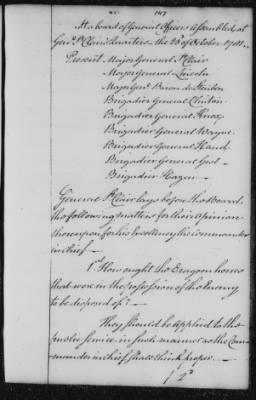 147
At a board of General Officers assembled at
Genl. St Clair's Quarters the 26 of October 1781.
Present. Major General St Clair
Major General Lincoln
Major Genl. Baron de Steuben
Brigadier General Clinton
Brigadier General Knox
Brigadier General Wayne
Brigadier General Hand
Brigadier General Gist
Brigadier Hazen
General St Clair lays before the Board
the following matters for their opinion
thereupon for his Excellency the commander
in chief
1st How ought the Dragoon horses
that were in the possession of the Enemy
to be disposed of?
They should be applied to the
public service in such manner as the Com
mander in chief shall think proper.
2d